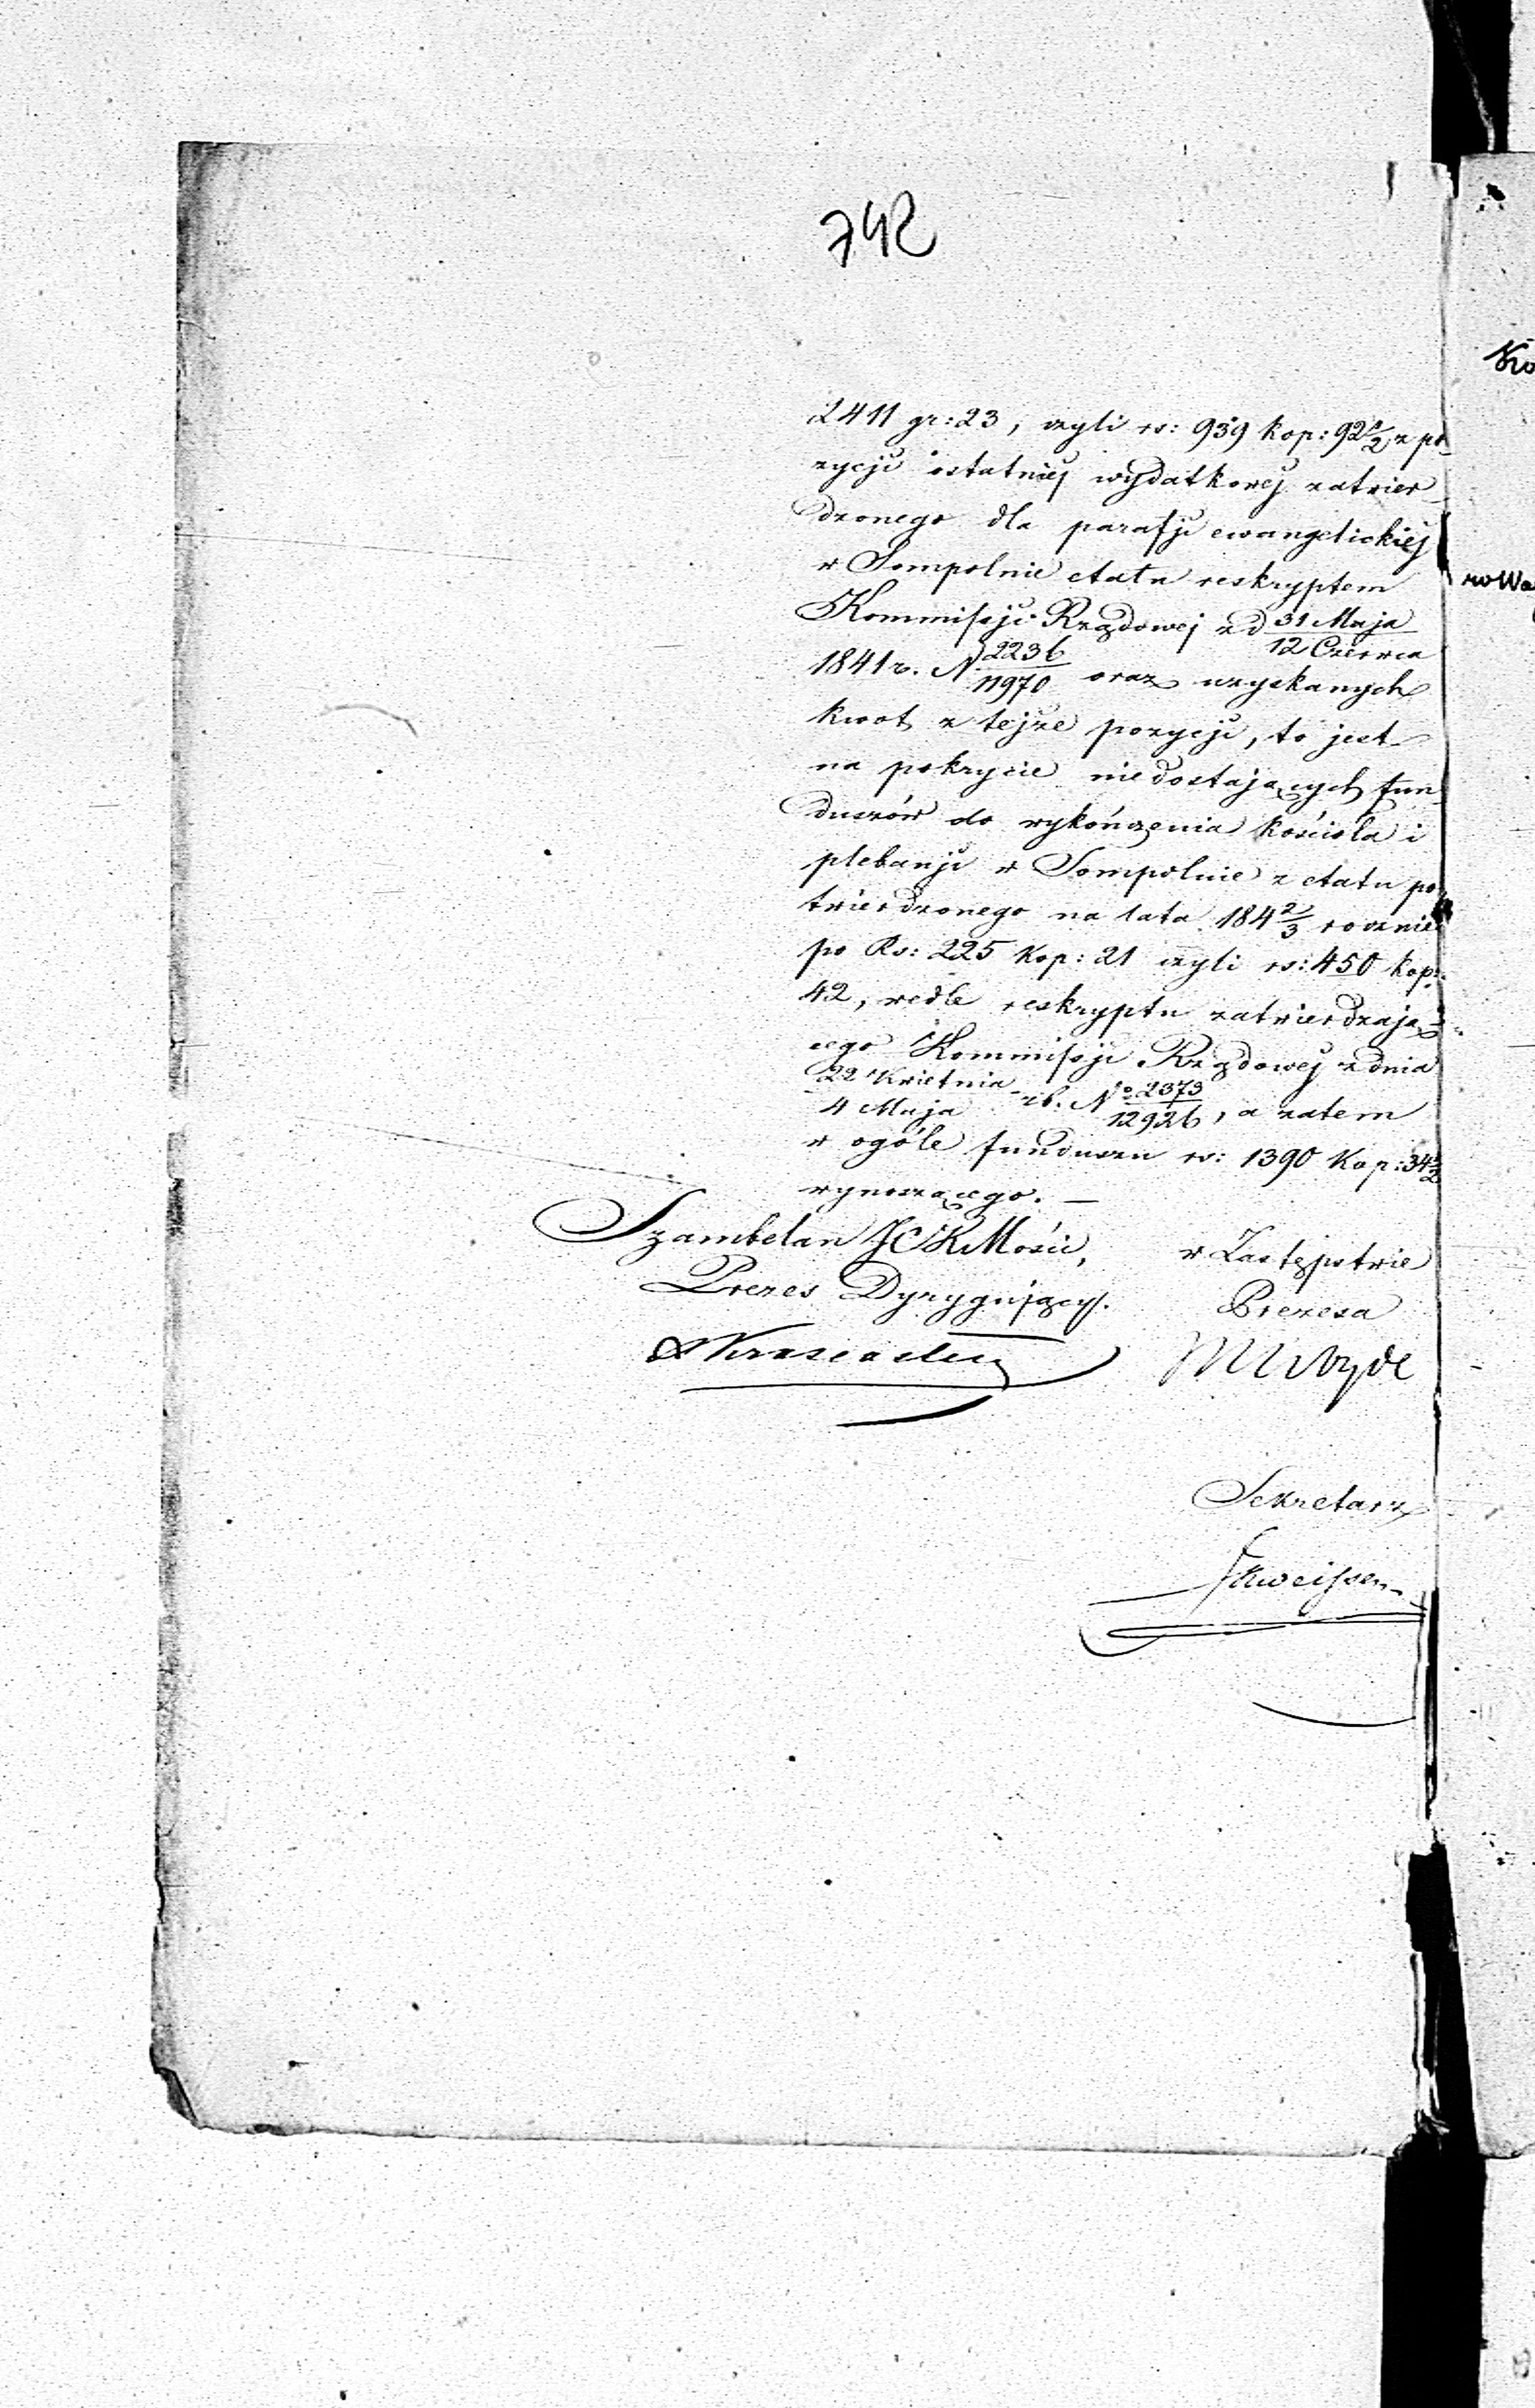 742
2411 gr: 23, czyli rs: 939 kop: 92 1/2 z po-
zycji ostatniej wydatkowej zatwier-
dzonego dla parafji ewangelickiej
w Sompolnie etatu reskryptem
Kommissji Rządowej z d 31 Maja/12 Czerwca
1841 r. N 2236/11970 oraz uzyskanych
kwot z tejże pozycji, to jest
na pokrycie niedostających fun-
duszów do wykończenia kościoła i
plebanji w Sompolnie z etatu po-
twierdzonego na lata 184 2/3 rocznie
po Rs: 225 Kop: 21 czyli rs: 450 kop:
42, wedle reskryptu zatwierdzają-
cego Kommissji Rządowej z dnia
22 Kwietnia/4 Maja rb. No 2373/12926, a zatem
w ogóle funduszu rs: 1390 Kop: 34 1/2
wynoszącego. —
Szambelan JCKMości,
Prezes Dyrygujący.
w Zastępstwie
Prezesa
Sekretarz